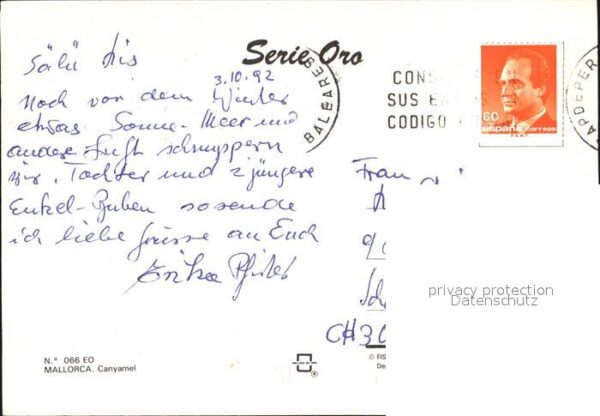 Serie Oro
Sälü Iris
3.10.92
Noch vor dem Winter
etwas Sonne - Meer und
andere Luft schnuppern
wir. Tochter und 2 jüngere
Enkel-Buben so sende
ich liebe Grüsse an Euch
Erika Pfister
BALEARES
CONS
SUS EN
CODIGO
60
españa correos
F.N.M.T.
APDEPER
Frau
CH30
privacy protection
Datenschutz
N.º 066 EO
MALLORCA. Canyamel
© FIS
De